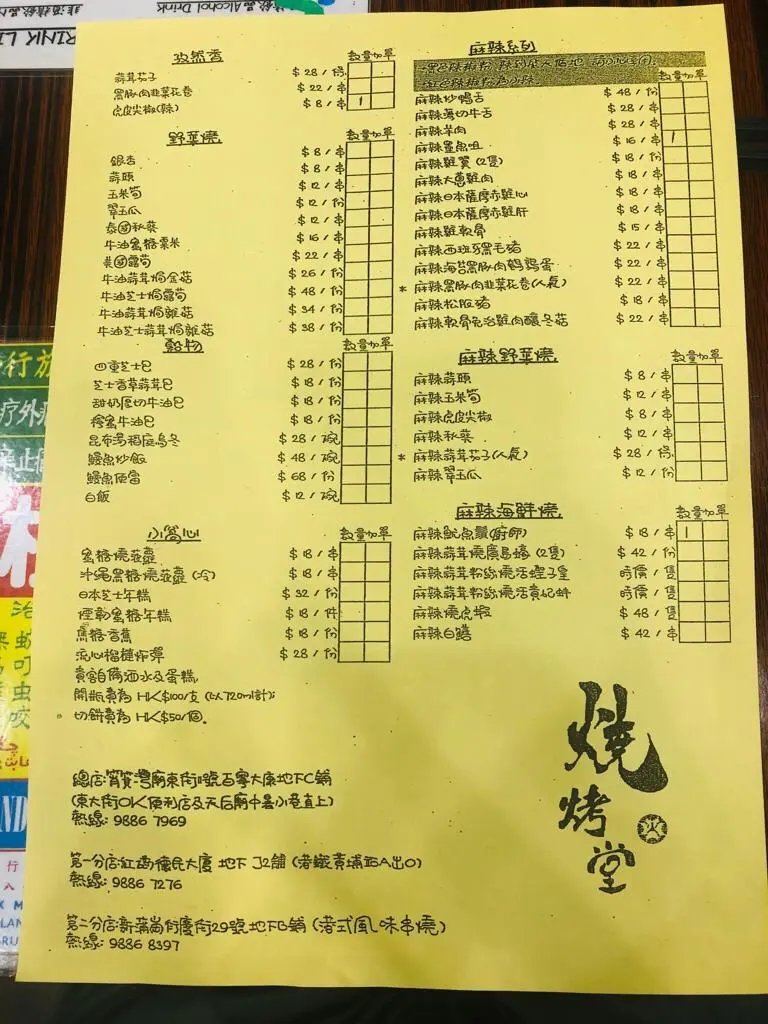 非酒精飲品Non
精飲品Alcohol Drink
DRINK LI
孜然香
數量加單
蒜茸茄子 $28/條
黑豚肉韭菜花卷 $22/串
虎皮尖椒(辣) $8/串 1
野菜燒
數量加單
銀杏 $8/串
蒜頭 $8/串
玉米筍 $12/串
翠玉瓜 $12/份
泰國秋葵 $12/串
牛油蜜糖粟米 $16/串
美國露筍 $22/串
牛油蒜茸焗金菇 $26/份
牛油芝士焗露筍 $48/份
牛油蒜茸焗雜菇 $34/份
牛油芝士蒜茸焗雜菇 $38/份
穀物
數量加單
四重芝士包 $28/份
芝士香草蒜茸包 $18/份
甜奶厚切牛油包 $18/份
檸蜜牛油包 $18/份
昆布湯稻庭烏冬 $28/碗
鰻魚炒飯 $48/碗
鰻魚便當 $68/份
白飯 $12/碗
小窩心
數量加單
蜜糖燒菠蘿 $18/串
沖繩黑糖燒菠蘿(冷) $18/串
日本芝士年糕 $32/份
煙韌蜜糖年糕 $18/件
焦糖香蕉 $18/份
流心榴槤炸彈 $28/份
貴客自備酒水及蛋糕,
開瓶費為 HK$100/支 (以720ml計);
切餅費為 HK$50/個。
總店:筲箕灣廟東街 號百寧大廈地下C舖
(東大街OK便利店及天后廟中間小巷直上)
熱線: 9886 7969
第一分店:紅磡 民大廈 地下 J2舖 (港鐵黃埔站A出口)
熱線: 9886 7276
第二分店:新蒲崗衍慶街29號地下B舖 (港式風味串燒)
熱線: 9886 8397
麻辣系列
數量加單
麻辣炒鴨舌 $48/份
麻辣薄切牛舌 $28/串
麻辣羊肉 $28/串
麻辣鱷魚咀 $16/串 1
麻辣雞翼(2隻) $18/份
麻辣大蔥雞肉 $18/串
麻辣日本薩摩赤雞心 $18/串
麻辣日本薩摩赤雞肝 $18/串
麻辣雞軟骨 $15/串
麻辣西班牙黑毛豬 $22/串
麻辣海苔黑豚肉鵪鶉蛋 $22/串
* 麻辣黑豚肉韭菜花卷(人氣) $22/串
麻辣松阪豬 $18/串
麻辣軟骨免治雞肉釀冬菇 $22/串
麻辣野菜燒
數量加單
麻辣蒜頭 $8/串
麻辣玉米筍 $12/串
麻辣虎皮尖椒 $8/串
麻辣秋葵 $12/串
* 麻辣蒜茸茄子(人氣) $28/條
麻辣翠玉瓜 $12/份
麻辣海鮮燒
數量加單
麻辣魷魚鬚(廚師) $18/串 1
麻辣蒜茸燒廣島蠔(2隻) $42/份
麻辣蒜茸粉絲燒活蟶子皇 時價/隻
麻辣蒜茸粉絲燒活貴妃蚌 時價/隻
麻辣燒虎蝦 $48/隻
麻辣白鱔 $42/串
燒烤堂
火